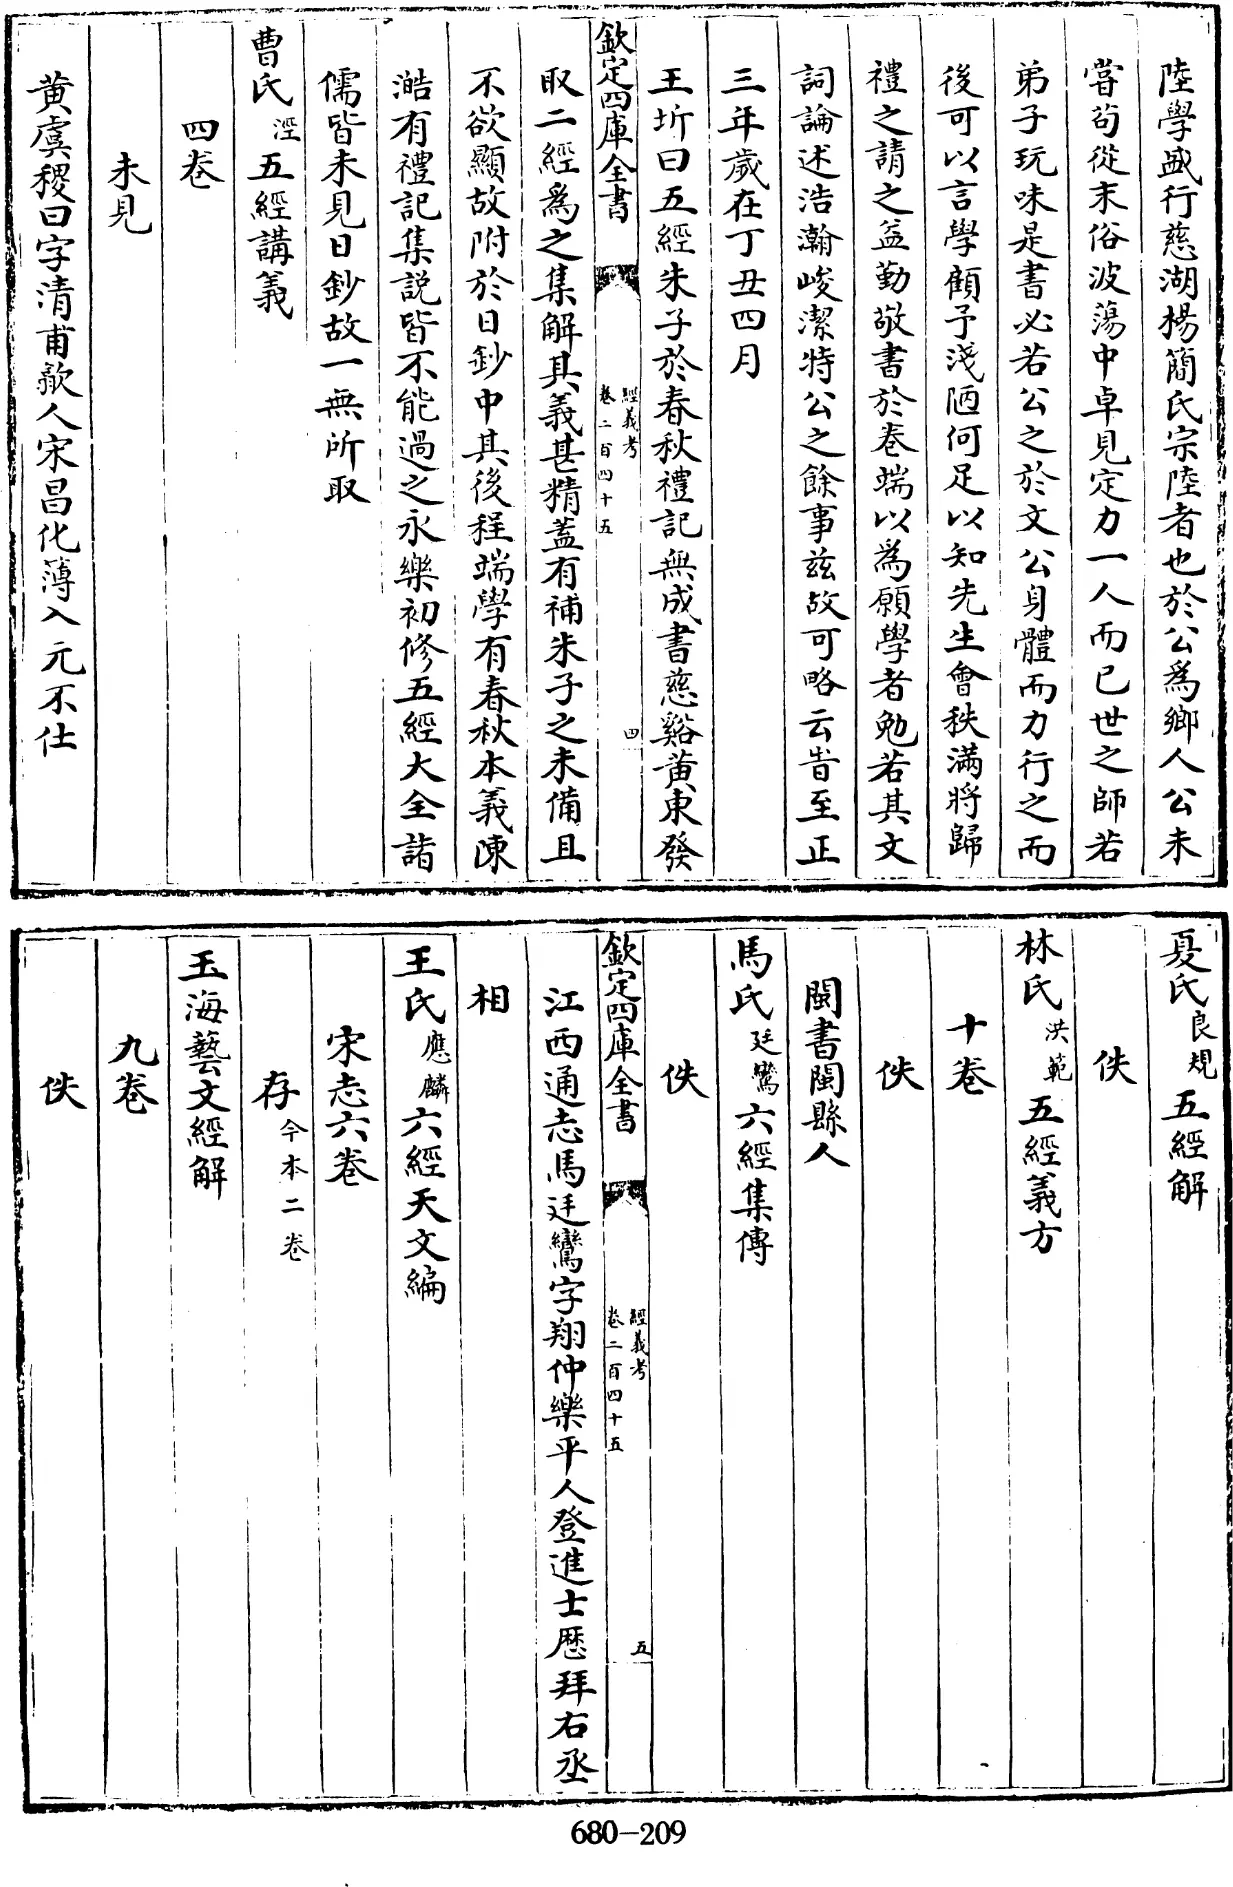 陸學盛行慈湖楊簡氏宗陸者也於公為鄉人公未
嘗茍從末俗波蕩中卓見定力一人而已世之師若
弟子玩味是書必若公之於文公身體而力行之而
後可以言學顧予淺陋何足以知先生會秩滿將歸
禮之請之益勤敬書於卷端以為願學者勉若其文
詞論述浩瀚峻潔特公之餘事茲故可略云旹至正
三年歲在丁丑四月
王圻曰五經朱子於春秋禮記無成書慈谿黄東發
欽定四庫全書
經義考
卷二百四十五
四
取二經為之集解其義甚精蓋有補朱子之未備且
不欲顯故附於日鈔中其後程端學有春秋本義陳
澔有禮記集説皆不能過之永樂初修五經大全諸
儒皆未見日鈔故一無所取
曹氏涇五經講義
四卷
未見
黄虞稷曰字清甫歙人宋昌化薄入元不仕
夏氏良規五經解
佚
林氏洪範五經義方
十卷
佚
閩書閩縣人
馬氏廷鸞六經集傳
佚
欽定四庫全書
經義考
卷二百四十五
五
江西通志馬廷鸞字翔仲樂平人登進士歷拜右丞
相
王氏應麟六經天文編
宋志六卷
存今本二卷
玉海藝文經解
九卷
佚
680-209